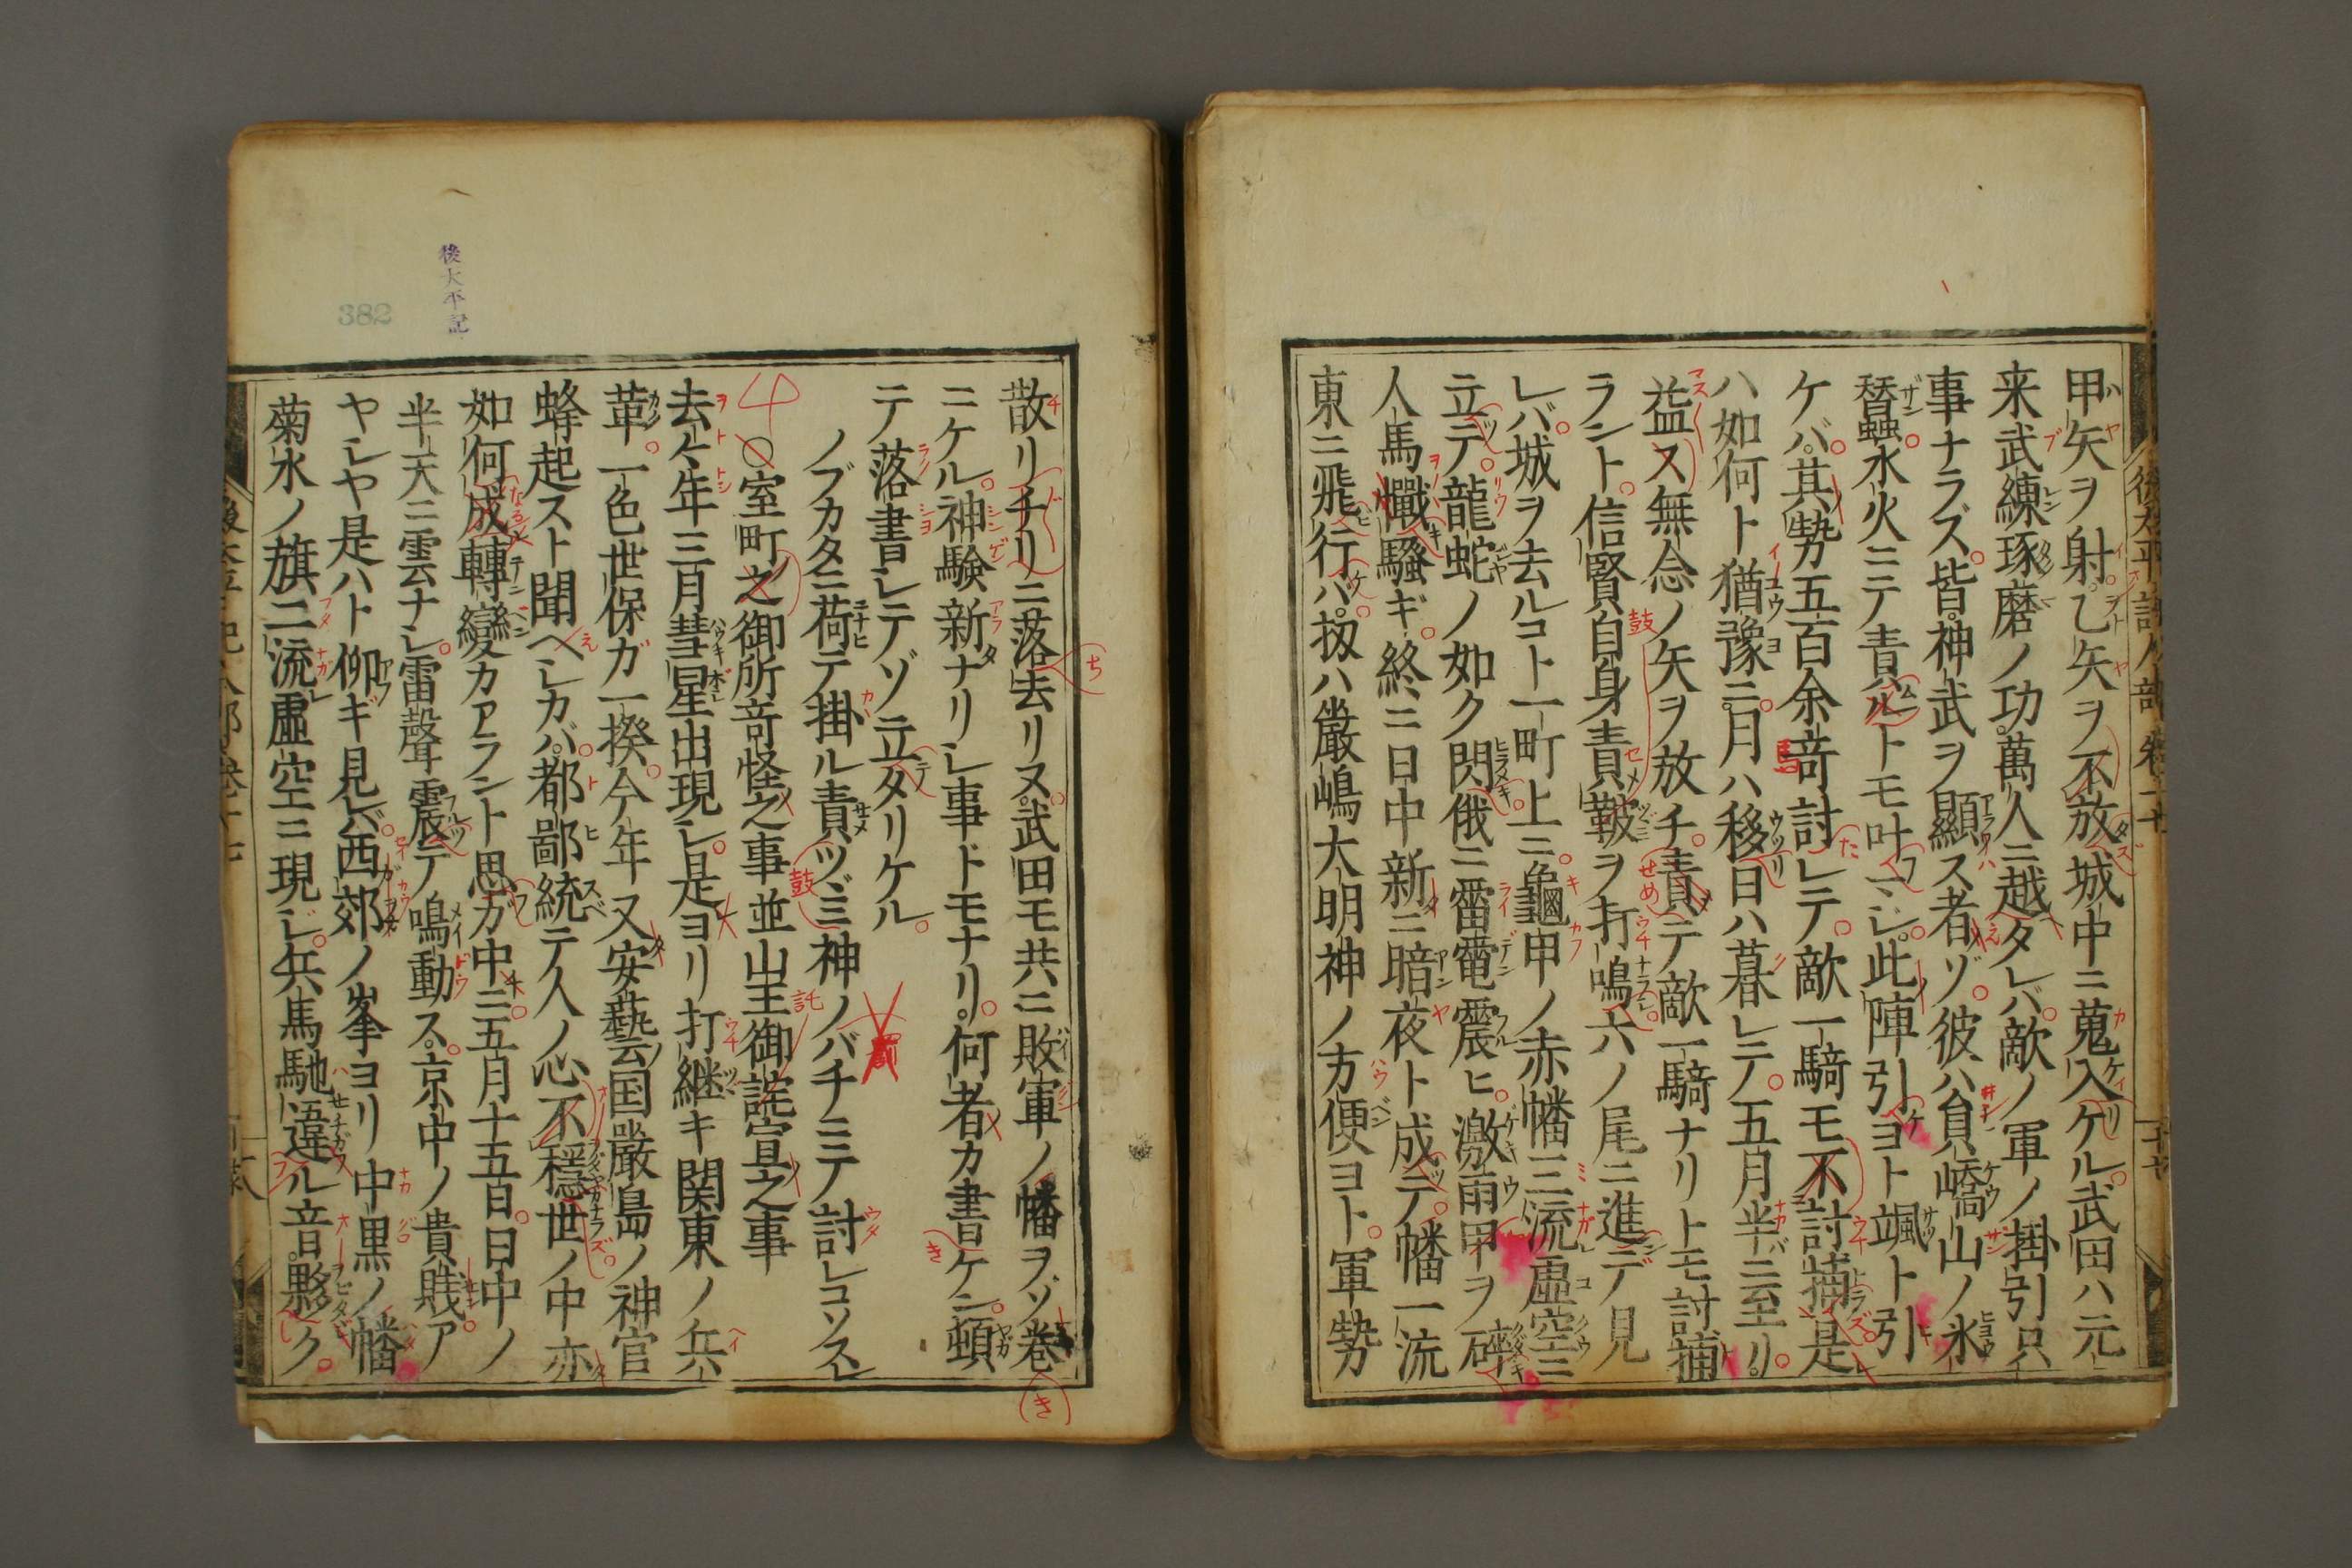 甲矢ヲ射乙矢ヲ不放城中ニ蒐入ケル武田ハ元
来武練琢磨ノ功萬人ニ越タレバ敵ノ軍ノ掛引只
事ナラズ皆神武ヲ顯ス者ゾ彼ハ負嶠山ノ氷
蠶水火ニテ責ルトモ叶マジ此陣引ヨト颯ト引
ケバ其勢五百余竒討レテ敵一騎モ不討捕是
ハ如何ト猶豫ニ月ハ移日ハ暮レテ五月半ニ至リ
益ス無念ノ矢ヲ放チ責テ敵一騎ナリトモ討捕
ラント信賢自身責鞁ヲ打鳴六ノ尾ニ進デ見
レバ城ヲ去ルコト一町上ニ龜甲ノ赤幡三流虚空ニ
立テ龍蛇ノ如ク閃俄ニ雷電震ヒ激雨甲ヲ碎
人馬懺騷ギ終ニ日中新ニ暗夜ト成テ幡一流
東ニ飛行バ扨ハ嚴嶋大明神ノ方便ヨト軍勢
後太平記人部
散リチリニ落去リヌ武田モ共ニ敗軍ノ幡ヲゾ巻
ニケル神験新ナリシ事ドモナリ何者カ書ケン頓
テ落書シテゾ立タリケル
ノブカタニ荷テ掛ル責ツヾミ神ノバチニテ討レコソスレ
○室町之御所竒怪之事並山王御詫宣之事
去ケ年三月彗星出現シ是ヨリ打継キ関東ノ兵
革一色世保ガ一揆今年又安藝国嚴島ノ神官
蜂起スト聞ヘシカバ都鄙統テ人ノ心不穏世ノ中亦
如何成轉變カアラント思ガ中ニ五月十五日日中ノ
半天ニ雲ナシ雷聲震テ鳴動ス京中ノ貴賎ア
ヤシヤ是ハト仰ギ見レバ西郊ノ峯ヨリ中黒ノ幡
菊水ノ旗二流虚空ニ現ジ兵馬馳違ル音夥ク
後太平記
382